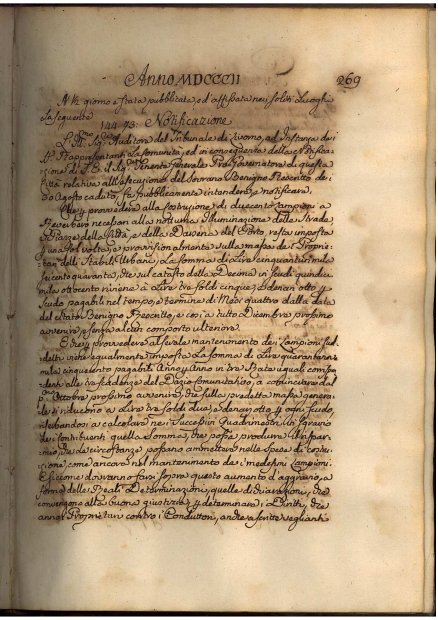 Anno MDCCCII
269
A di giorno è stata pubblicata, ed affissata nei soliti Luoghi
la seguente
Notificazione
L'Ill. Sig. Auditore del Tribunale di Livorno, ad Instanza dei
SS. Rappresentanti la Comunità, ed in conseguenza della Notificazione
di S. E. il Sig. Tenente Generale Governatore di questa
Città relativa all'esecuzione del Sovrano Benigno Rescritto dei
Agosto caduto, fa pubblicamente intendere, e notificare
Che per provvedere alla costruzione di duecento Lampioni a
Reverbero necessari alla notturna Illuminazione delle Strade,
e Piazze della Città, e della Darsena del Porto, resta imposta
per una sol volta, e provvisionalmente sulla massa dei Proprietari
degli Stabili Urbani, la somma di Lire cinquantamila
secento quaranta, che sul catasto della Decima in scudi quindicimila
ottocento viene a Lire tre soldi cinque, e denari otto per
scudo pagabili nel tempo, e termine di Mesi quattro dalla data
del citato Benigno Rescritto, e così a tutto Dicembre prossimo
avvenire, e senza alcun comporto ulteriore.
E che per provvedere al mantenimento dei Lampioni suddetti
viene egualmente imposta la somma di Lire quarantanovemila
cinquecento pagabili Anno per Anno in tre Rate uguali corrispondenti
alle tre scadenze del Dazio comunitativo, a cominciare dal
p.mo Ottobre prossimo avvenire, che sulla predetta massa generale
si riducono a Lire tre soldi due, e denari otto per ogni scudo,
riserbandosi a calcolare nei successivi Quadrimestri in sgravio
dei contribuenti quella somma, che possa produrre un risparmio,
che le circostanze possano ammettere nelle spese di costruzione,
come ancora nel mantenimento dei medesimi Lampioni.
E siccome dovranno farsi sopra questo aumento d'aggravio, a
forma delle Reali Determinazioni, quelle dichiarazioni, che
convengono alla buona giustizia, per determinare i Diritti, che
anno i Proprietari contro i Conduttori, andrà scritte seguenti